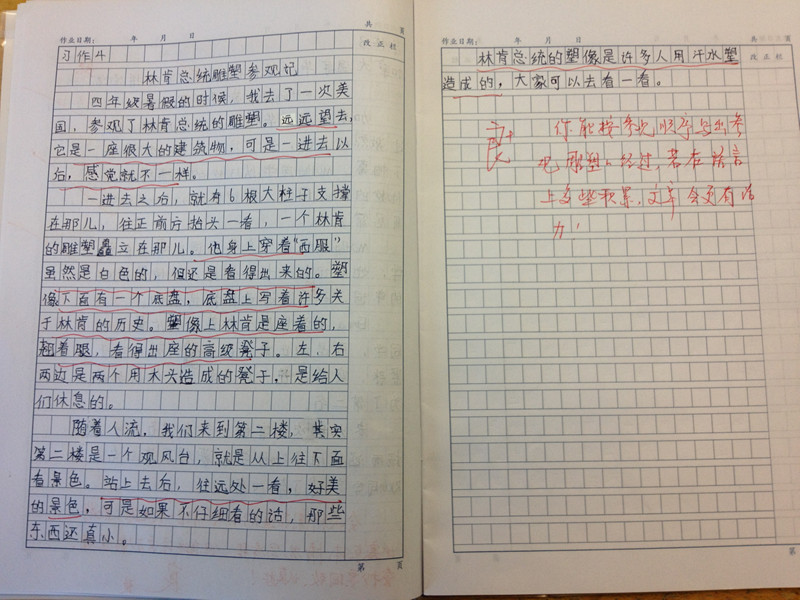 作业日期： 年 月 日
共 页
改正栏
习作4
林肯总统雕塑参观记
四年级暑假的时候，我去了一次美
国，参观了林肯总统的雕塑。远远望去，
它是一座很大的建筑物，可是一进去以
后，感觉就不一样。
一进去之后，就有6根大柱子支撑
在那儿，往正前方抬头一看，一个林肯
的雕塑矗立在那儿。他身上穿着“西服”
虽然是白色的，但还是看得出来的。塑
像下面有一个底盘，底盘上写着许多关
于林肯的历史。塑像上林肯是座着的，
翘着腿，看得出座的高级凳子。左、右
两边是两个用木头造成的凳子，是给人
们休息的。
随着人流，我们来到第二楼，其实
第二楼是一个观风台，就是从上往下面
看景色。站上去后，往远处一看，好美
的景色，可是如果不仔细看的话，那些
东西还真小。
第 页
作业日期： 年 月 日
共 页
改正栏
林肯总统的塑像是许多人用汗水塑
造成的，大家可以去看一看。
你能按参观顺序写出参
观雕塑的经过，若在语言
上多些积累，文章会更有活
力！
第